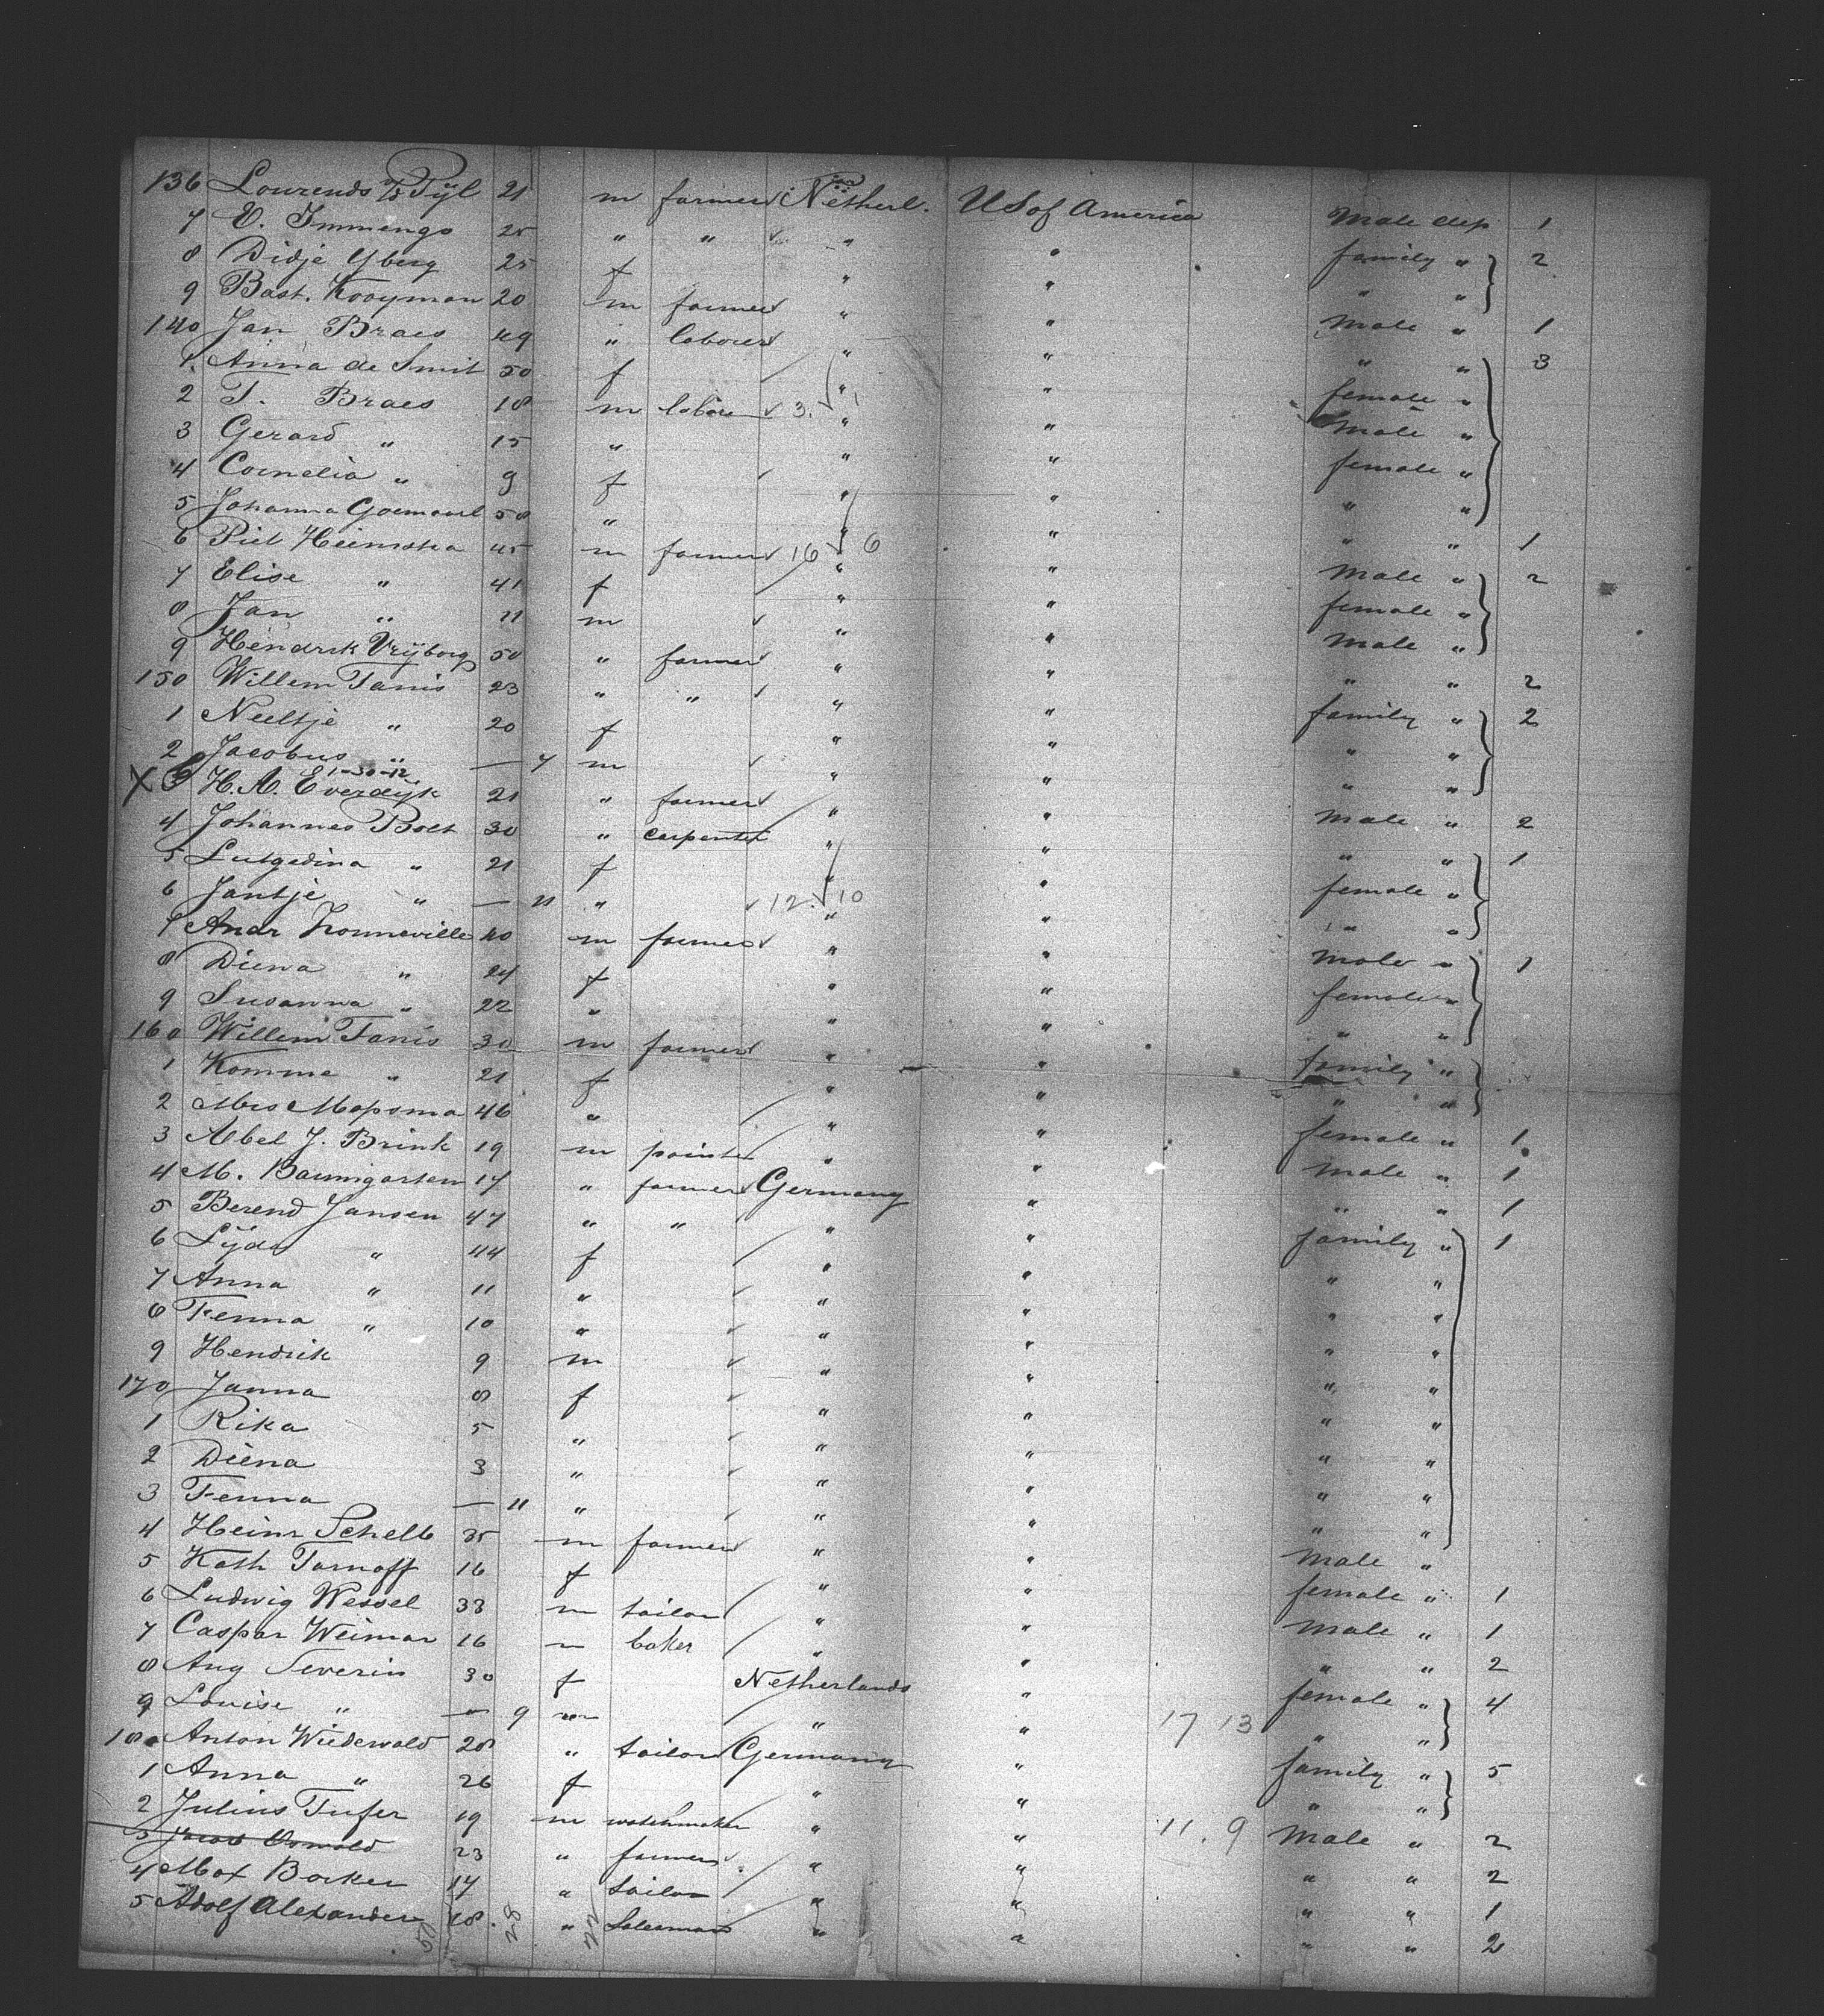 136 Lourends v/d Pijl 21 m farmer Netherl. U S of America Male dep 1
7 E. Immengo 25 " " " " family " 2
8 Didje Yberg 25 f " " " "
9 Bast. Kooyman 20 m farmer " " Male " 1
140 Jan Braes 49 " laborer " " " " 3
1 Anna de Smit 50 f " " female "
2 T. Braes 18 m labore 3. 1 " " Male "
3 Gerard " 15 " " " female "
4 Cornelia " 9 f " " " "
5 Johanna Goemaal 58 " " " " " 1
6 Piet Heemstra 45 m farmer 16 6 " " Male " 2
7 Elise " 41 f " " female "
8 Jan " 11 m " " Male "
9 Hendrik Vrijborg 50 " farmer " " " " 2
150 Willem Tanis 23 " " " " family " 2
1 Neeltje " 20 f " " " "
2 Jacobus " — 7 m " " " "
1-30-12
X 3 H. A. Everdijk 21 " farmer " " Male " 2
4 Johannes Bolt 30 " carpenter " " " " 1
5 Lutgedina " 21 f " " female "
6 Jantje " — 11 " 12. 10 " " " "
7 Andr Konneville 40 m farmer " " Male " 1
8 Diena " 24 f " " female "
9 Susanna " 22 " " " " "
160 Willem Tanis 30 m farmer " " family "
1 Komme " 21 f " " " "
2 Mrs Mapsma 46 " " " female " 1
3 Albel J. Brink 19 m painter " " Male " 1
4 M. Baumgarten 17 " farmer Germany " " " 1
5 Berend Jansen 47 " " " " family " 1
6 Lijda " 44 f " " " "
7 Anna " 11 " " " " "
8 Fenna " 10 " " " " "
9 Hendrik 9 m " " " "
170 Janna 8 f " " " "
1 Rika 5 " " " " "
2 Diena 3 " " " " "
3 Fenna — 11 " " " " "
4 Heinr Schelb 35 m farmer " " Male "
5 Kath Tarnoff 16 f " " female " 1
6 Ludwig Wessel 33 m tailor " " Male " 1
7 Caspar Weimar 16 " baker " " " " 2
8 Aug Severin 30 f Netherlands " female " 4
9 Louise " — 9 " " " 17 13 " "
180 Anton Wiedewald 28 " tailor Germany " family " 5
1 Anna " 26 f " " " "
2 Julius Tufer 19 m watchmaker " " 11. 9 Male " 2
3 Jacob Oswald 23 " farmer " " " " 2
4 Max Barker 17 " tailor " " " " 1
5 Adolf Alexander 18. 28 " Salesman " " " " 2